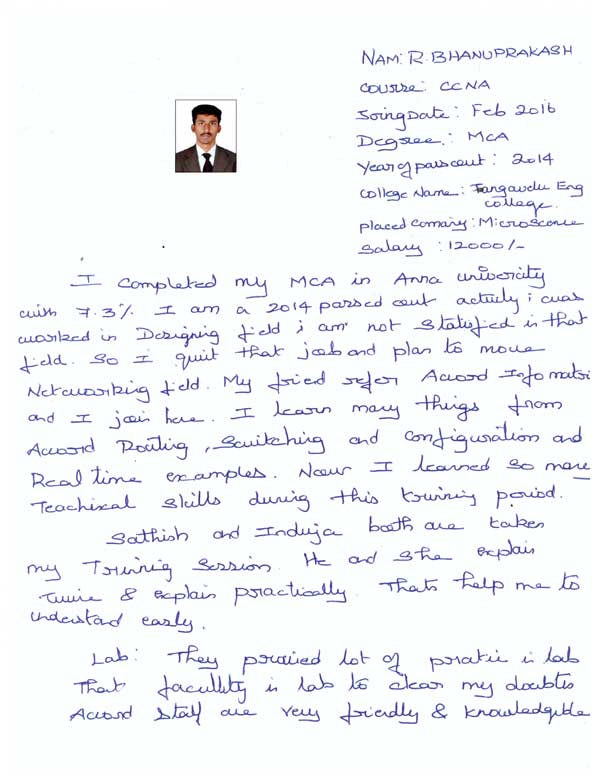 NAM: R. BHANUPRAKASH
COURSE: CCNA
JoingDate: Feb 2016
Degree: MCA
Year of passout: 2014
College Name: Tangavelu Eng
college.
placed comany: Microsconce
Salary: 12000/-
I completed my MCA in Anna univercity
with 7.3%. I am a 2014 passed out actuly i was
worked in Designig field i am not Statisfied in that
field. So I quit that job and plan to move
Networking field. My fried refer Accord Info matri
and I join here. I learn many things from
Accord Routing, Switching and configuration and
Real time examples. Now I learned so more
Teachixal skills during this trining period.
Sathish and Induja both are taken
my Trining Session. He and she explain
twice & explain practically. Thats help me to
understand easly.
Lab: They provied lot of pratic in lab
That facullity in lab to clear my doubts
Accord Staff are very friendly & knowledgible